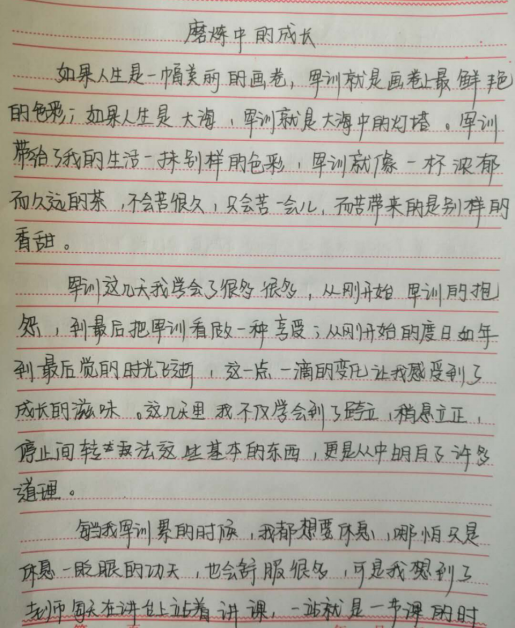 磨炼中的成长
如果人生是一幅美丽的画卷,军训就是画卷上最鲜艳
的色彩;如果人生是大海,军训就是大海中的灯塔。军训
带给了我的生活一抹别样的色彩,军训就像一杯浓郁
而久远的茶,不会苦很久,只会苦一会儿,而苦带来的是别样的
香甜。
军训这几天我学会了很多很多,从刚开始军训的抱
怨,到最后把军训看做一种享受;从刚开始的度日如年
到最后觉的时光飞逝,这一点一滴的变化让我感受到了
成长的滋味。这几天里我不仅学会到了跨立,稍息立正,
停止间转法这些基本的东西,更是从中明白了许多
道理。
每当我军训累的时候,我都想要休息,哪怕只是
休息一眨眼的功夫,也会舒服很多,可是我想到了
老师每天在讲台上站着讲课,一站就是一节课的时